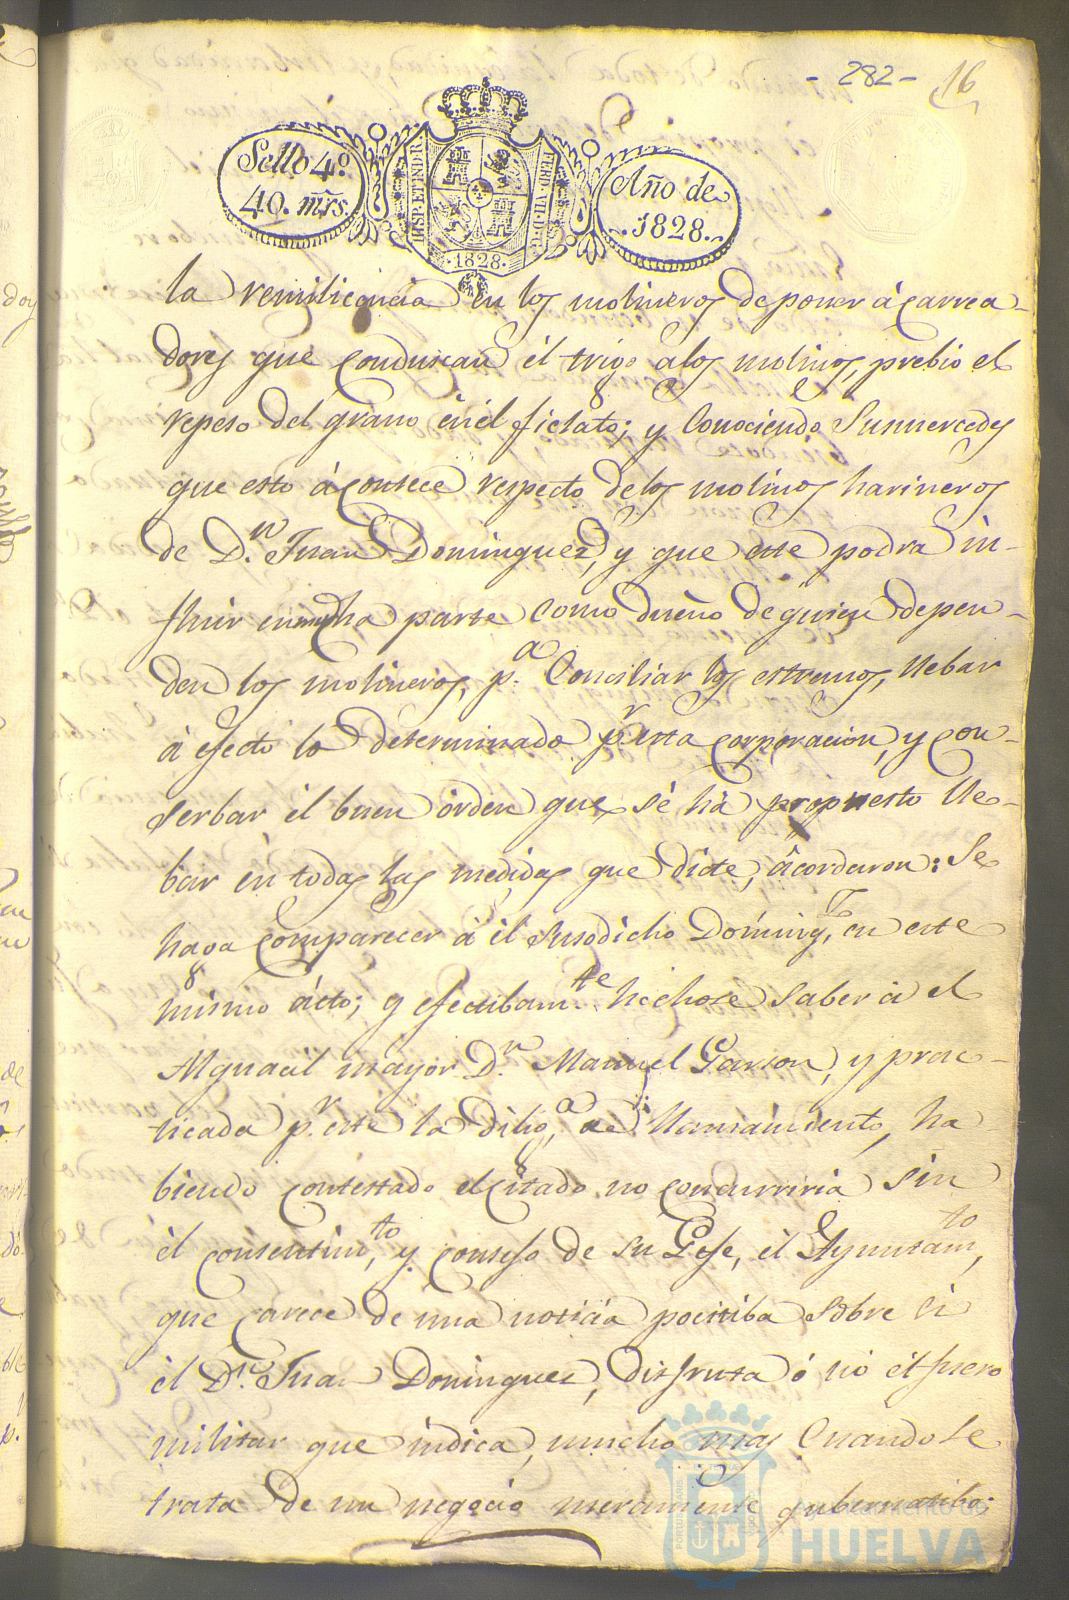 - 282 -
16
Sello 4º
40. mrs.
HISP. ET IND. R.
FERD. VII. D. G.
1828.
Año de
1828.
la remiticencia en los molineros de poner ácarrea-
dores que Conduscan él trigo alos molinos, prebio el
repeso del grano en él fielato; y Conociendo Susmercedes
que esto ácontece respecto delos molinos harineros
de D.n Juan Dominguez, y que este podra in-
fluir enmucha parte como dueño dequien depen-
den los molineros, p.a Conciliar los estremos, llebar
á efecto lo determinado p.r esta corporacion, y con-
serbar él buen órden que sé há propuesto lle-
bar en todas las medidas que dicte, ácordaron: Se
haga comparecer á él susodicho Doming.z en este
mismo ácto; y efectibam.te hichose saber á el
Alguacil mayor D.n Manuel Garson, y prac-
ticada p.r este la dilig.a de llamamiento, ha-
biendo contestado el citado no concurriria sin
él consentim.to y consejo de su Gefe, él Ayuntam.to
que carece de una noticia pocitiba sobre si
él D.n Juan Dominguez, disfruta ó nó él fuero
militar que indica, mucho mas Cuando se
trata de un negocio meramente gubernatibo;
Ayuntamiento de
HUELVA